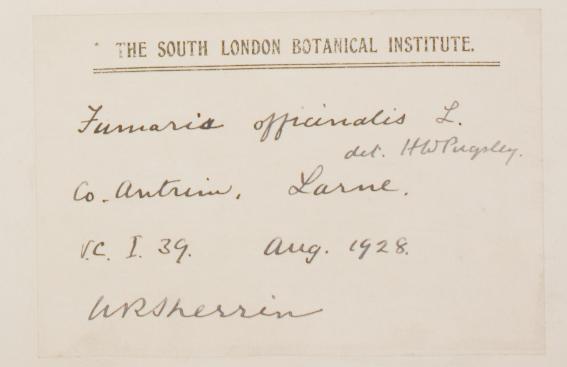 THE SOUTH LONDON BOTANICAL INSTITUTE.
Fumaria officinalis L.
det. HWPugsley.
Co. Antrim, Larne.
V.C. I. 39. Aug. 1928.
WRSherrin